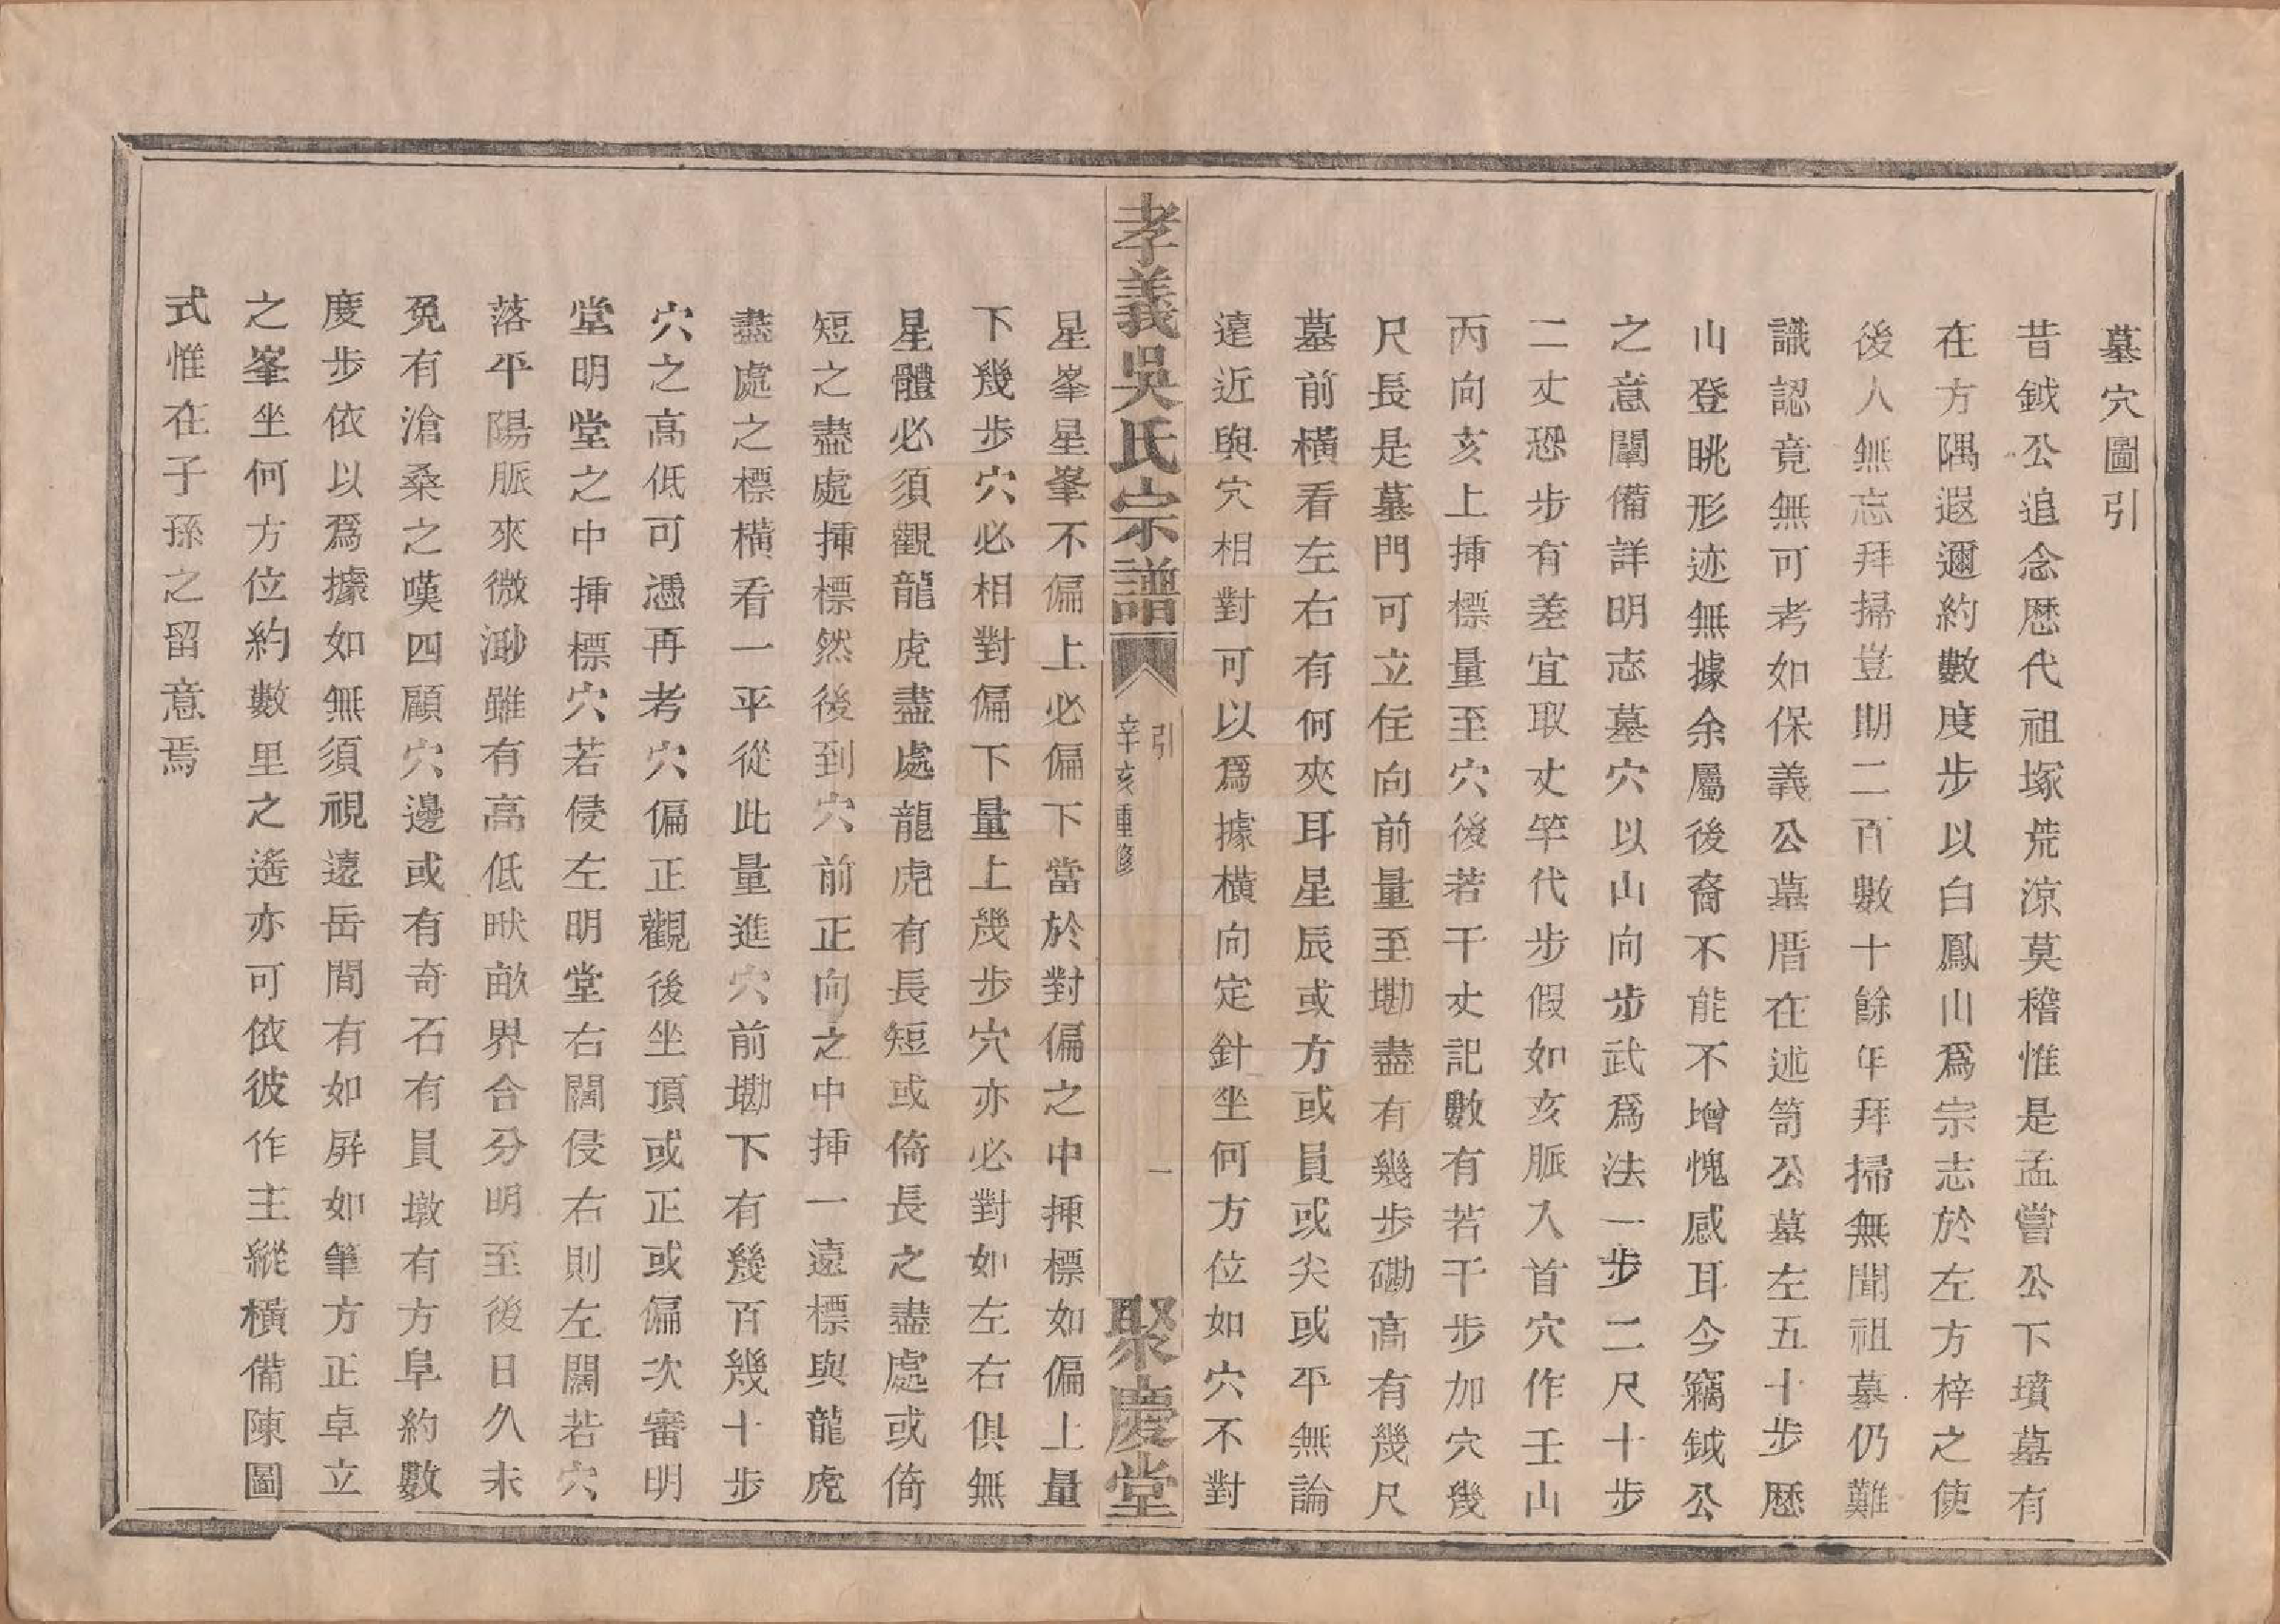 墓穴圖引
昔鉞公追念歷代祖塚荒涼莫稽惟是孟嘗公下墳墓有
在方隅遐邇約數度步以白鳳山爲宗志於左方梓之使
後人無忘拜掃豈期二百數十餘年拜掃無聞祖墓仍難
識認竟無可考如保義公墓厝在述笥公墓左五十步歷
山登眺形迹無據余屬後裔不能不增愧感耳今竊鉞公
之意闡備詳明志墓穴以山向步武爲法一步二尺十步
二丈恐步有差宜取丈竿代步假如亥脈入首穴作壬山
丙向亥上揷標量至穴後若干丈記數有若干步加穴幾
尺長是墓門可立住向前量至墈盡有幾步磡高有幾尺
墓前橫看左右有何夾耳星辰或方或員或尖或平無論
遠近與穴相對可以爲據橫向定針坐何方位如穴不對
孝義吳氏宗譜
引
辛亥重修
一
聚慶堂
星峯星峯不偏上必偏下當於對偏之中揷標如偏上量
下幾步穴必相對偏下量上幾步穴亦必對如左右俱無
星體必須觀龍虎盡處龍虎有長短或倚長之盡處或倚
短之盡處揷標然後到穴前正向之中揷一遠標與龍虎
盡處之標橫看一平從此量進穴前墈下有幾百幾十步
穴之高低可憑再考穴偏正觀後坐頂或正或偏次審明
堂明堂之中揷標穴若侵左明堂右闊侵右則左闊若穴
落平陽脈來微渺雖有高低畎畝界合分明至後日久未
免有滄桑之嘆四顧穴邊或有奇石有員墩有方阜約數
度步依以爲據如無須視遠岳間有如屏如筆方正卓立
之峯坐何方位約數里之遙亦可依彼作主縱橫備陳圖
式惟在子孫之留意焉